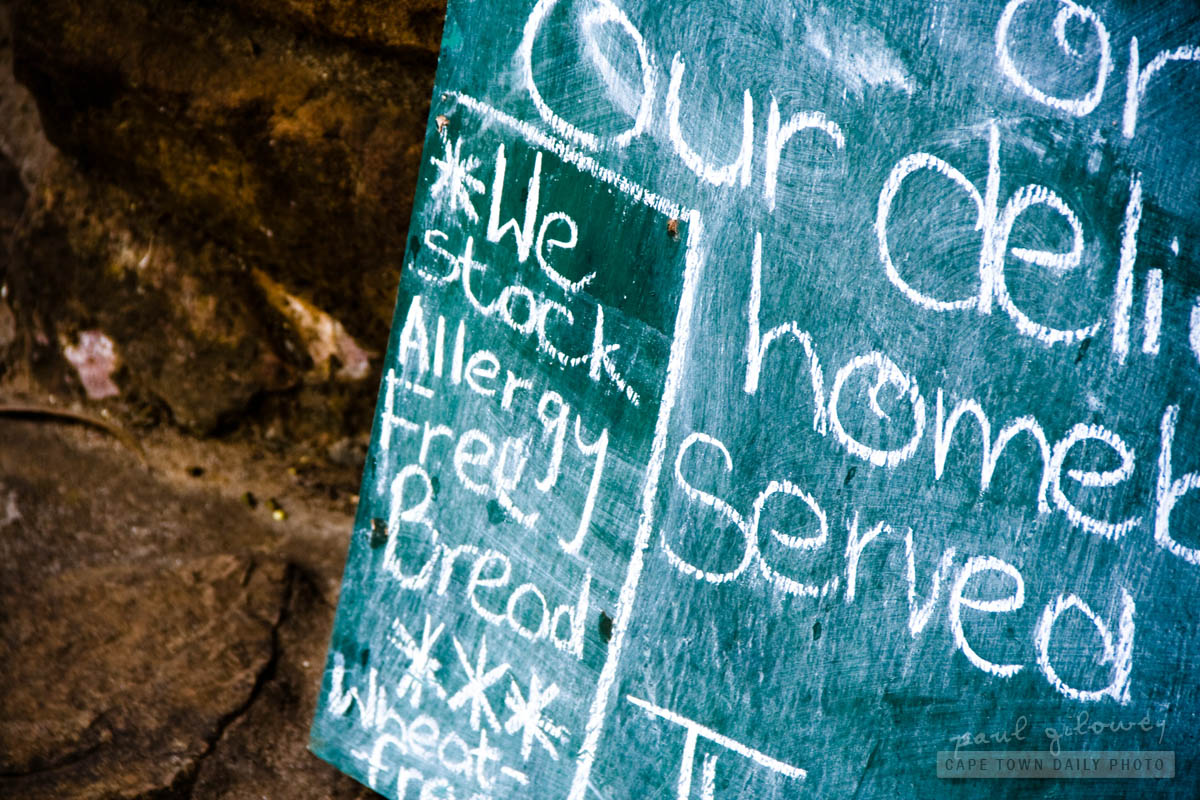 *We
stock
Allergy
Free
Bread
***
Wheat-
free
or
Our deli
homeb
Served
T
paul gilowey
CAPE TOWN DAILY PHOTO